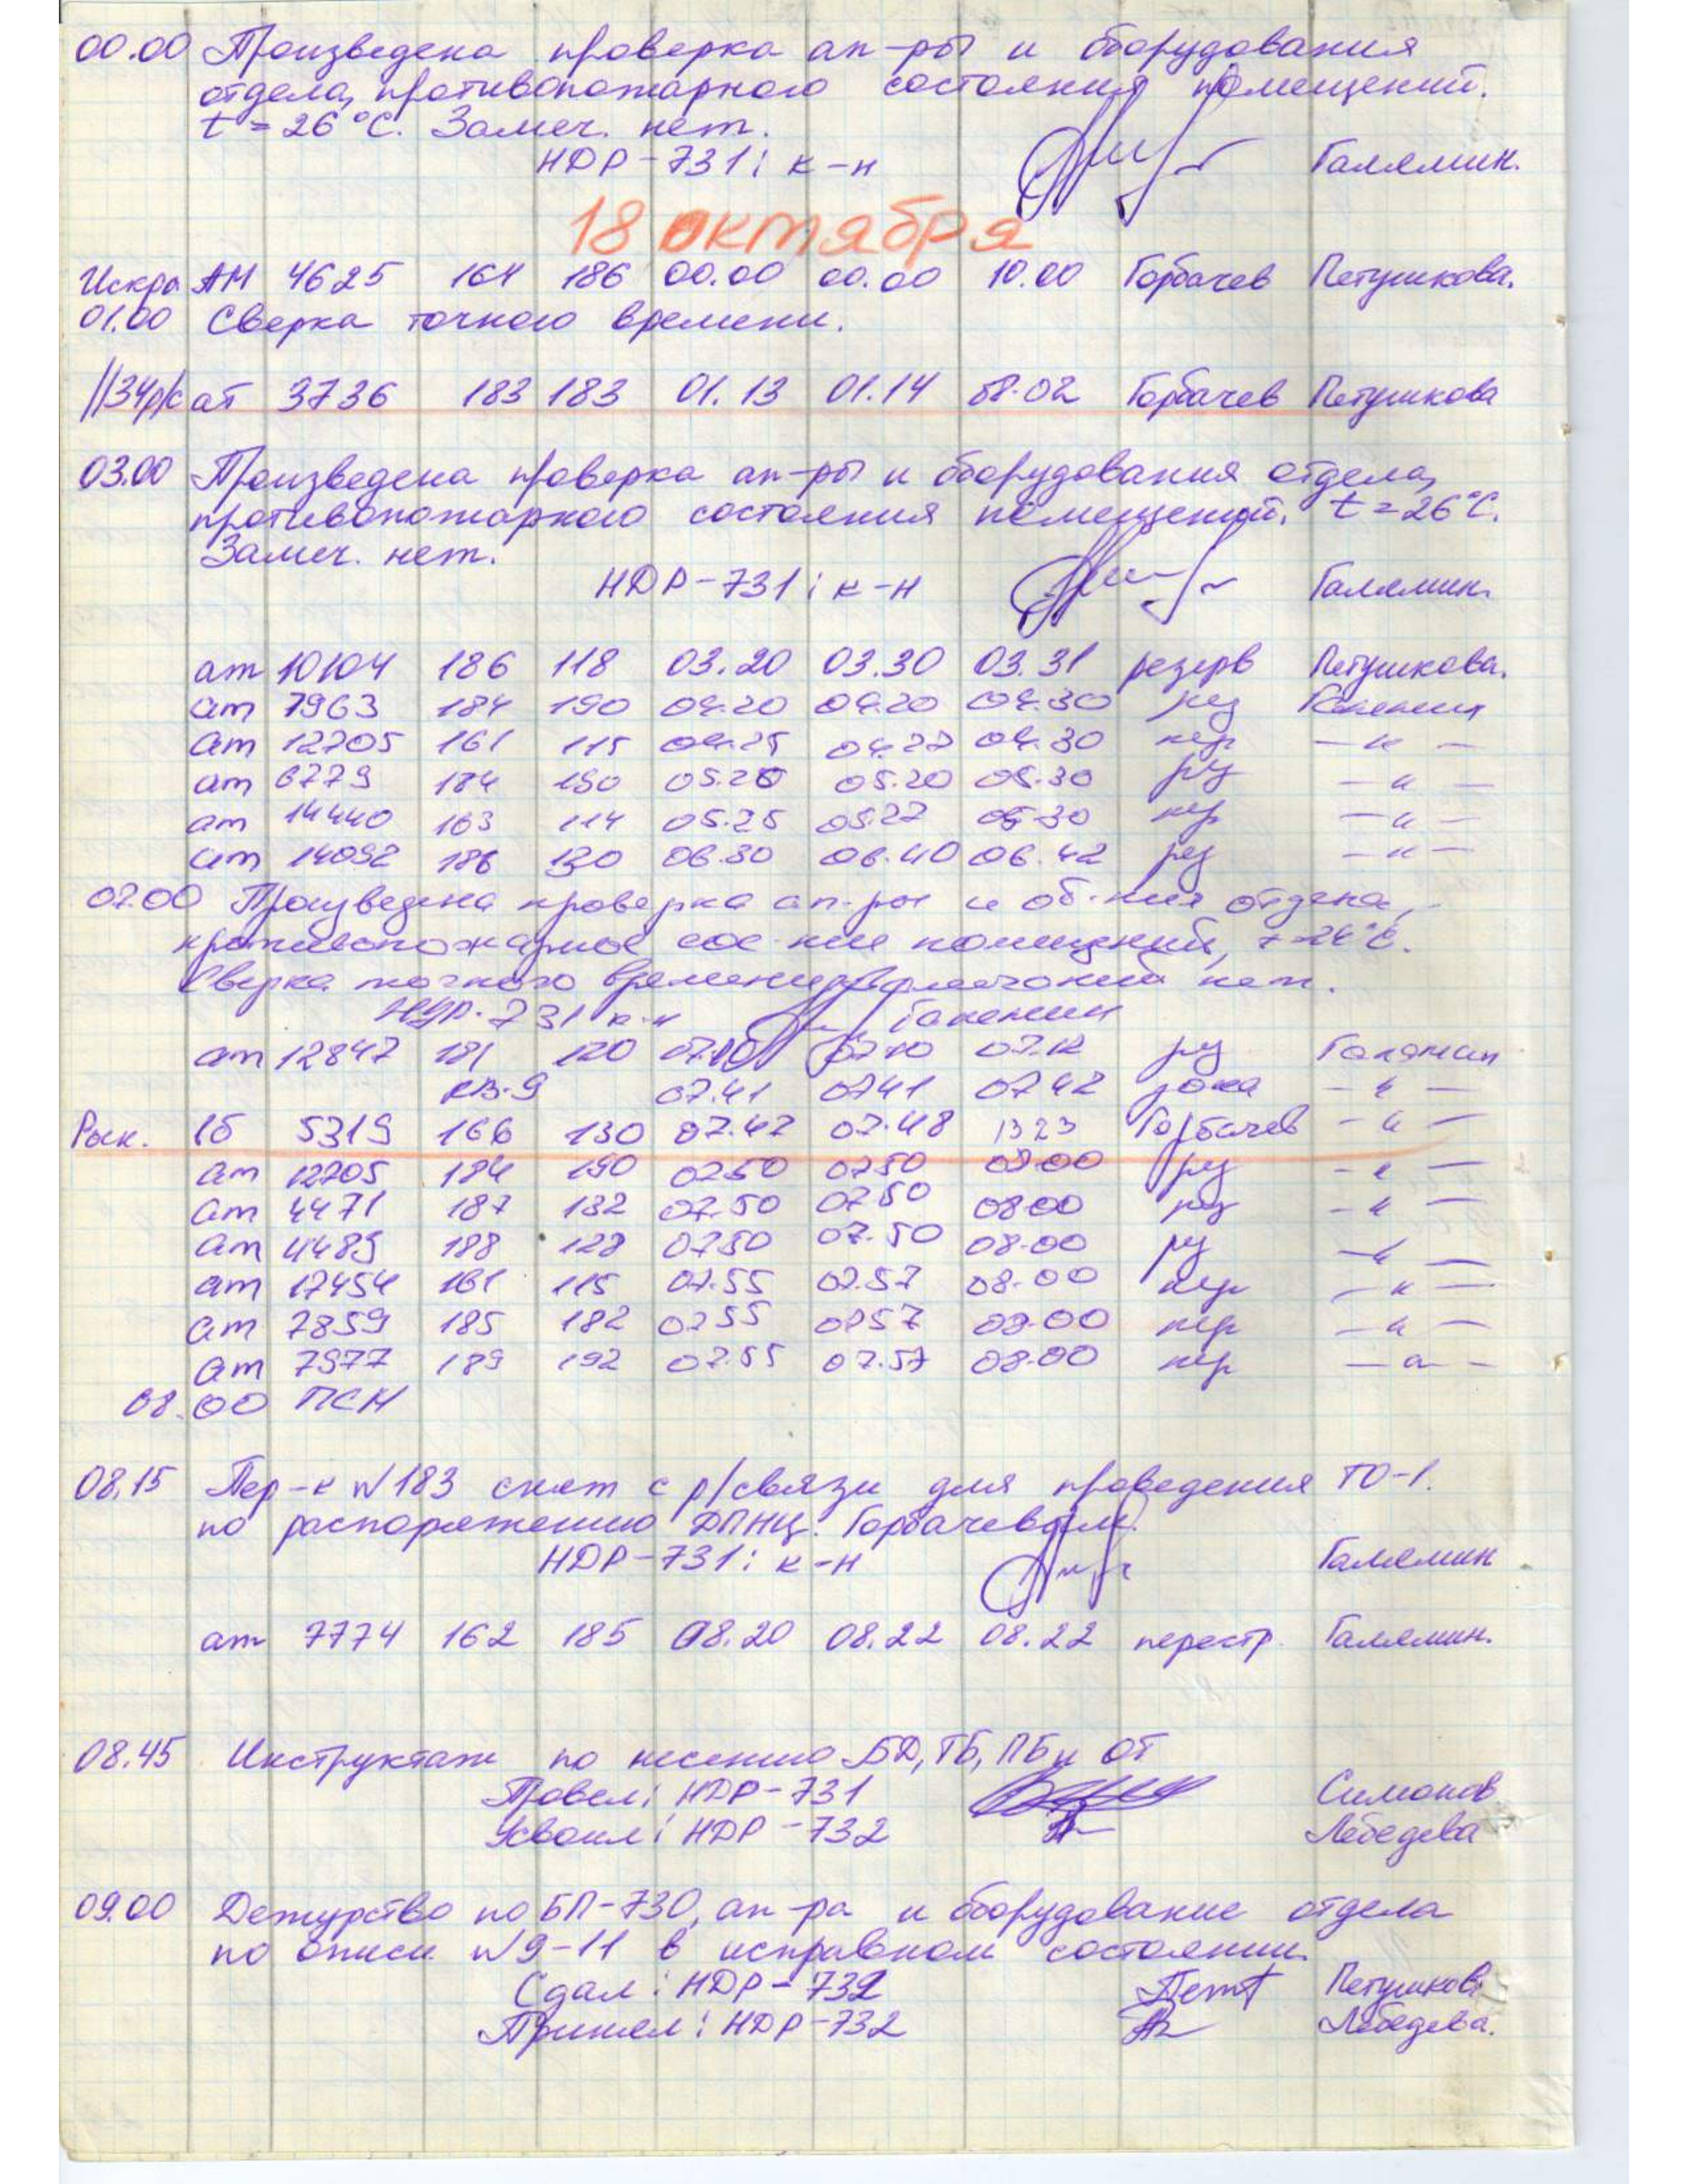 00.00 Произведена проверка ап-ры и оборудования
отдела, противопожарного состояния помещений.
t = 26°С. Замеч. нет.
НДР-731: к-н Галямин.
18 октября
Искра АМ 4625 164 186 00.00 00.00 10.00 Горбачев Петушкова.
01.00 Сверка точного времени.
//34р/с ат 3736 183 183 01.13 01.14 08.02 Горбачев Петушкова
03.00 Произведена проверка ап-ры и оборудования отдела,
противопожарного состояния помещений. t = 26°С.
Замеч. нет.
НДР-731: к-н Галямин.
ат 10104 186 118 03.20 03.30 03.31 резерв Петушкова.
ат 7963 184 190 04.20 04.20 04.30 рез Галямин
ат 12705 161 115 04.25 04.27 04.30 пер — " —
ат 6779 184 190 05.20 05.20 05.30 рез — " —
ат 14440 163 114 05.25 05.27 05.30 пер — " —
ат 14092 186 130 06.30 06.40 06.42 рез — " —
07.00 Произведена проверка ап-ры и об-ния отдела,
противопожарное сос-ние помещений, t=26°С.
Сверка точного времени, замечаний нет.
НДР-731 к-н Галямин
ат 12847 181 120 07.10 07.10 07.12 рез Галямин
КВ-9 07.41 0741 0742 зона — " —
Раск. 1б 5319 166 130 07.47 07.48 1323 Горбачев — " —
ат 12705 184 190 0750 0750 08.00 рез — " —
ат 4471 187 132 07.50 0750 08.00 рез — " —
ат 4489 188 127 0750 07.50 08.00 рез — " —
ат 17454 161 115 07.55 07.57 08.00 пер — " —
ат 7859 185 182 0755 0757 08.00 пер — " —
ат 7977 189 192 07.55 07.57 08.00 пер — " —
08.00 ПСН
08.15 Пер-к №183 снят с р/связи для проведения ТО-1.
по распоряжению ДПНЦ. Горбачевым.
НДР-731: к-н Галямин
ат 7774 162 185 08.20 08.22 08.22 перестр. Галямин.
08.45 Инструктаж по несению БД, ТБ, ПБ и ОТ
Провел: НДР-731 Симонов
Усвоил: НДР-732 Лебедева
09.00 Дежурство по БП-730, ап-ра и оборудование отдела
по описи №9-11 в исправном состоянии.
Сдал: НДР-732 Пет Петушкова
Принял: НДР-732 Лебедева.